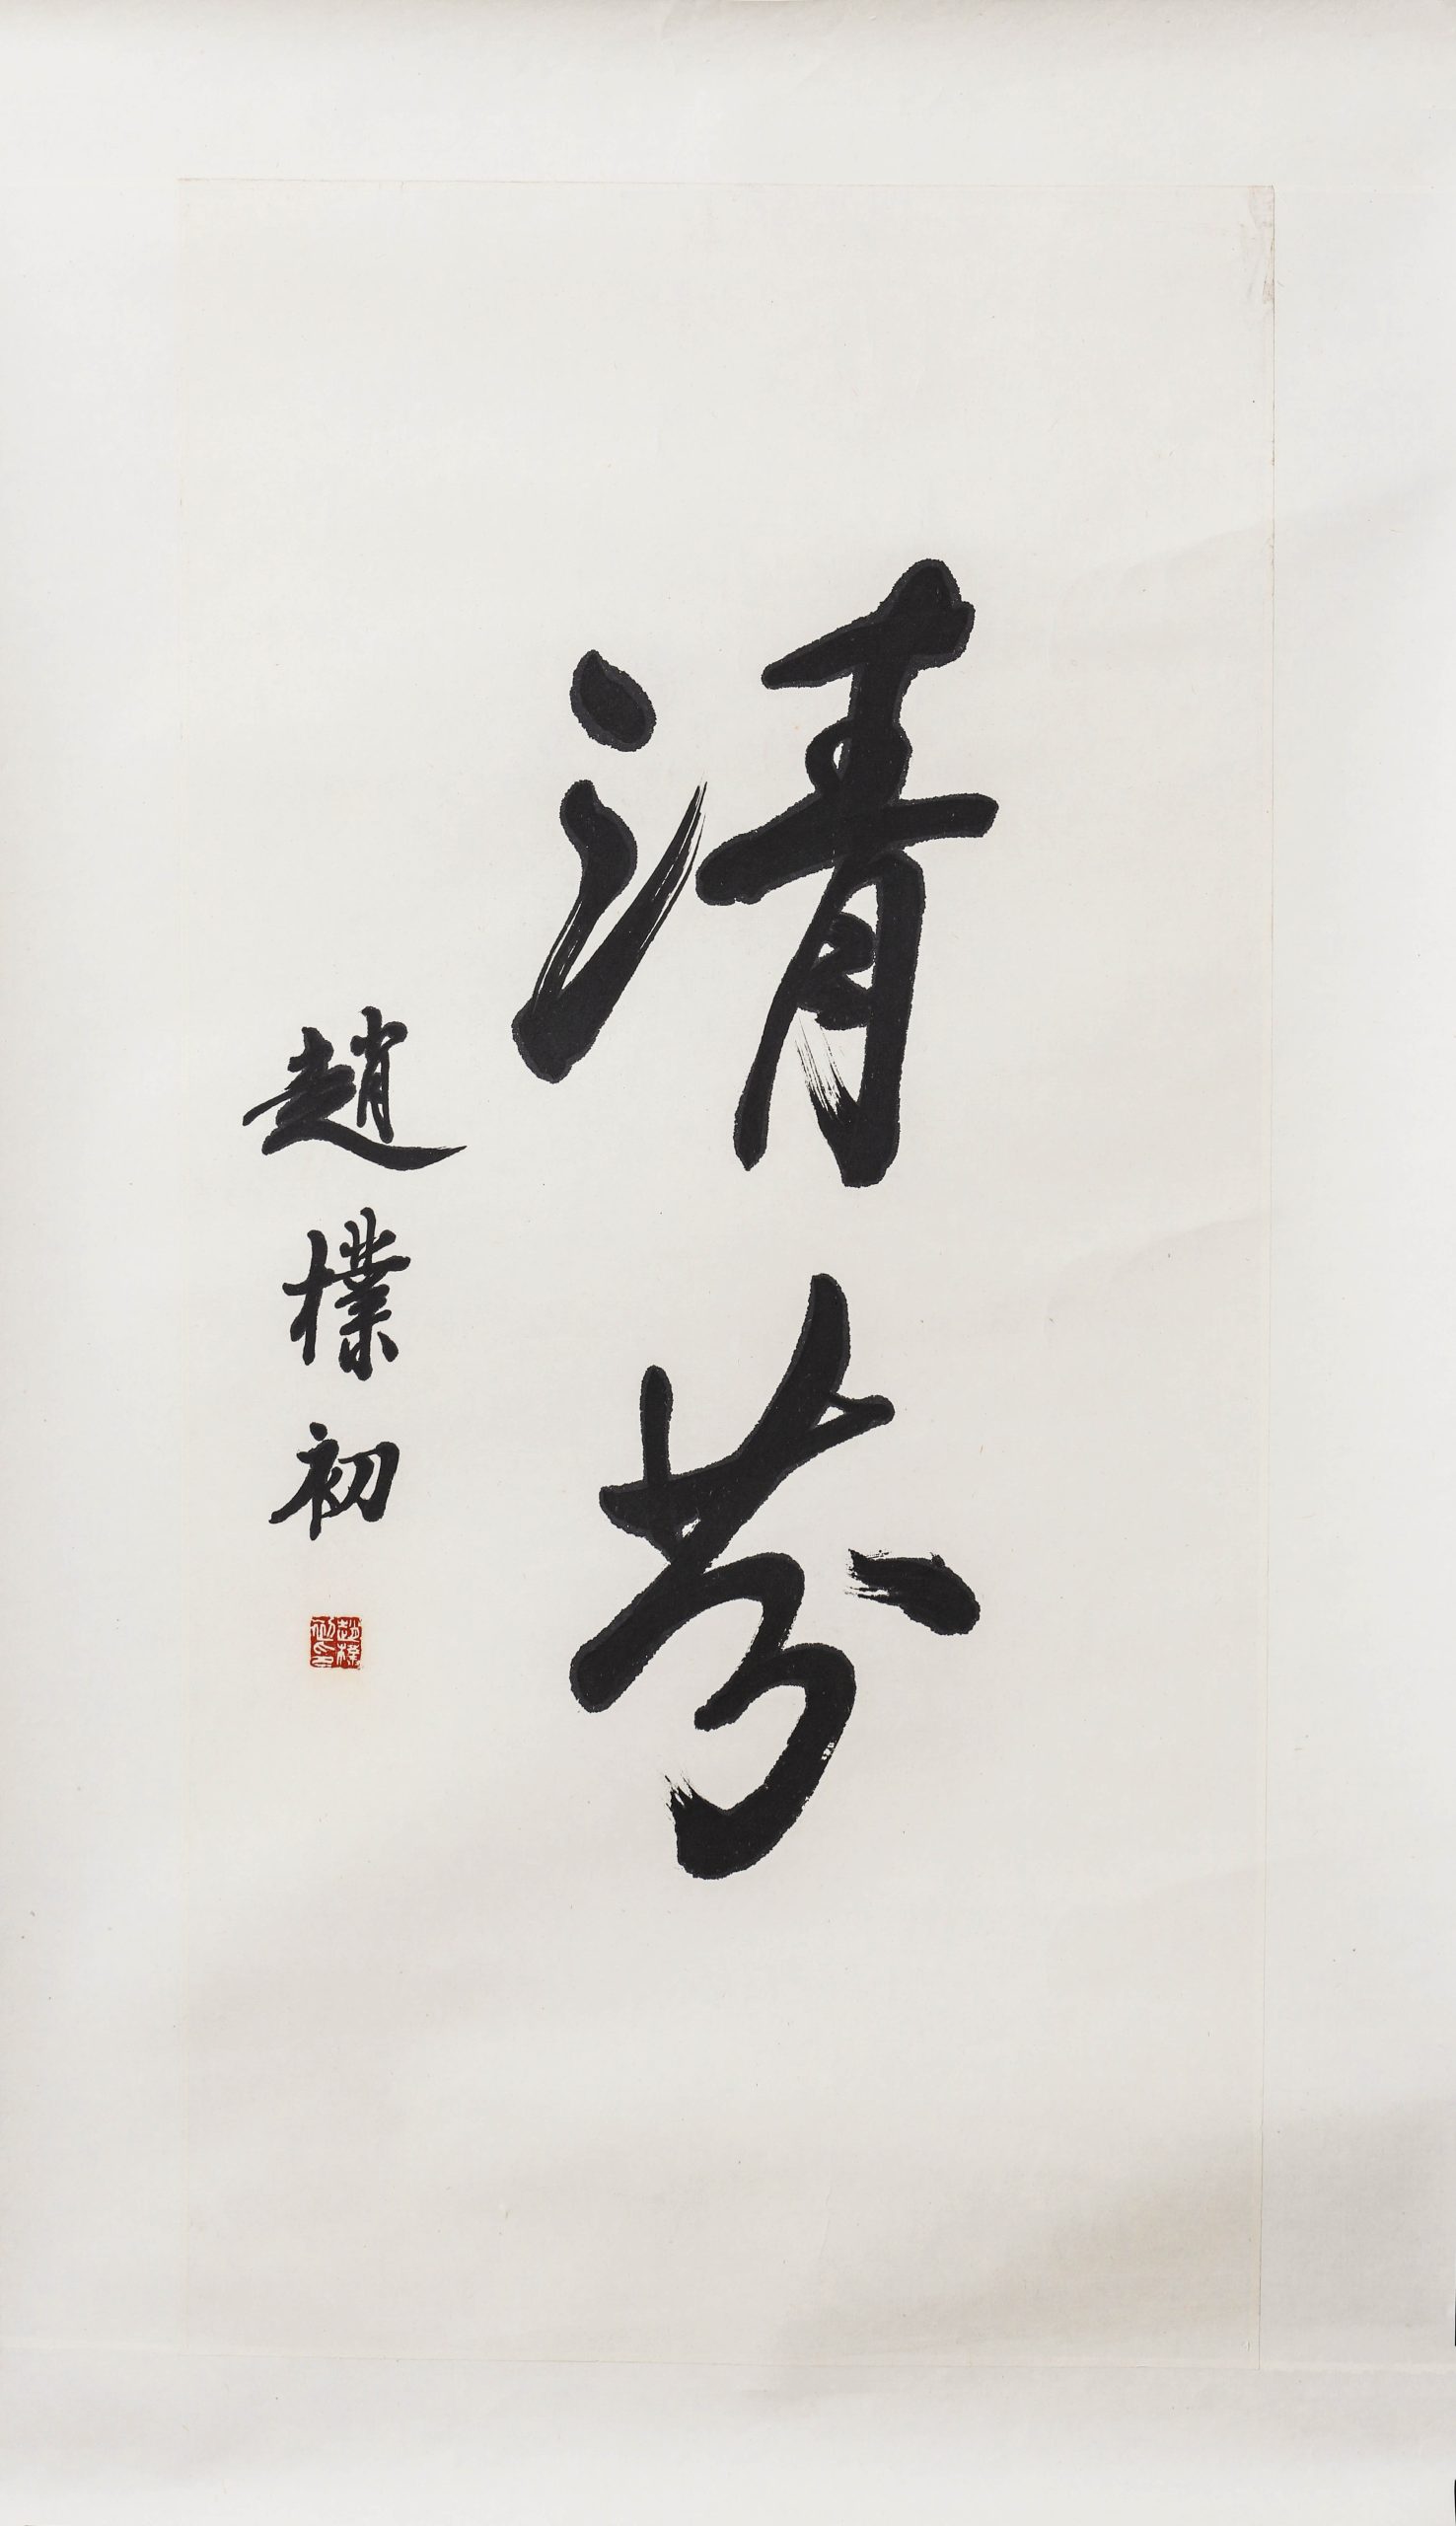 清芬
趙樸初
趙樸初印